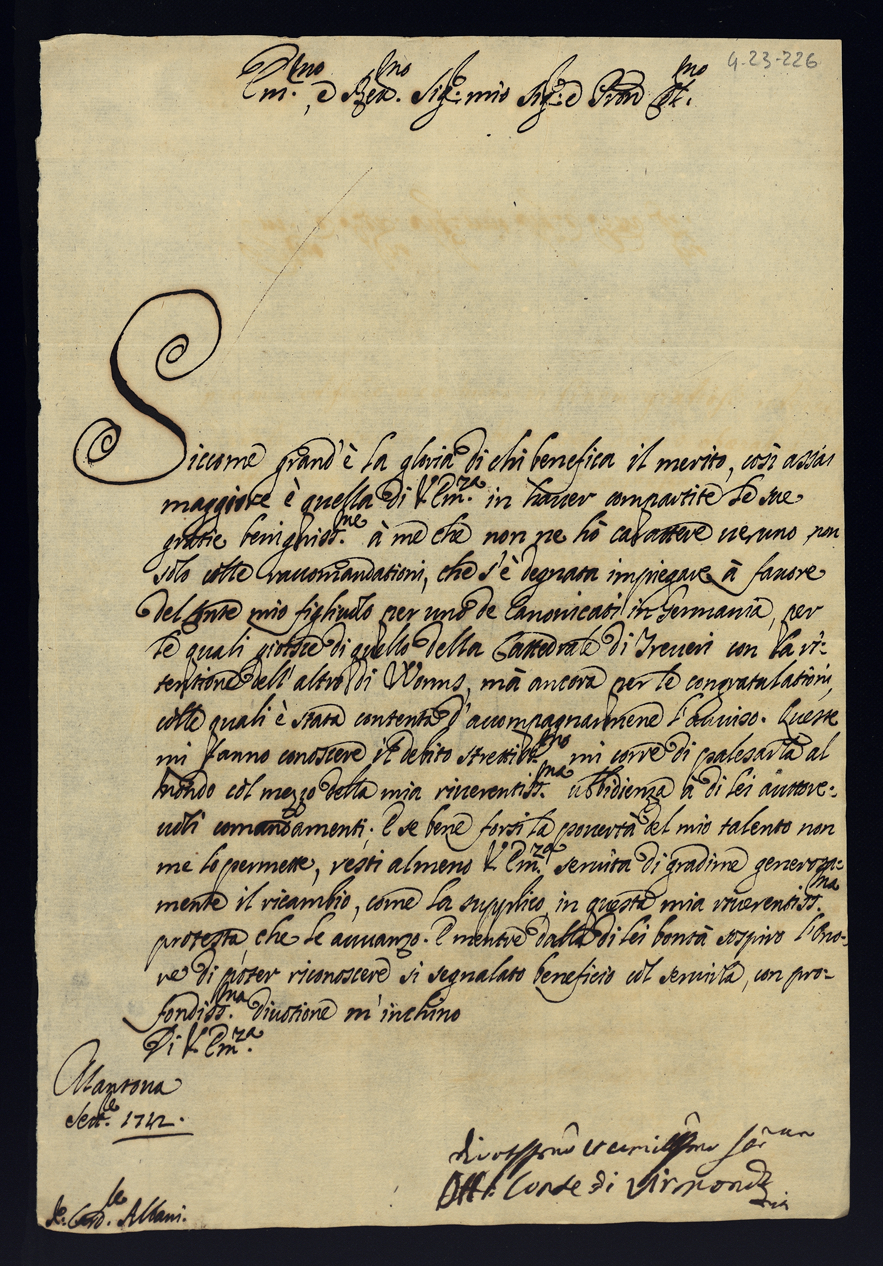 4-23-226
Em.mo, e Rev.mo Sig.r mio Sig.r e Pron
Siccome grand'è la gloria di chi benefica il merito, così assai
maggiore è quella di V. Em.za in hauer compartite le sue
gratie benigniss.me à me che non ne hò carattere ueruno, non
solo colle raccomandationi, che s'è degnata impiegare à fauore
del Conte mio figliuolo per uno de Canonicati in Germania, per
le quali gioisce di quello della Cattedrale di Treueri con la ri:
tentione dell'altro di Worms, mà ancora per le congratulationi,
colle quali è stata contenta d'accompagnarmene l'auuiso. Queste
mi fanno conoscere il debito mi corre di palesarla al
mondo col mezzo della mia riuerentiss.ma ubbidienza à di lei auttore:
uoli comandamenti; E se bene forsi la pouertà del mio talento non
me lo permette, resti almeno V. Em.za seruita di gradirne generosa:
mente il ricambio, come la supplico, in questa mia riuerentiss.ma
protesta, che le auuanzo. E mentre dalla di lei bontà sospiro l'ono:
re di poter riconoscere si segnalato beneficio col seruirla, con pro:
fondiss.ma diuotione m'inchino
Di V. Em.za
Mantoua
1712.
diuotissimo et humilissimo
Conte di Virmond
Card.le Albani.